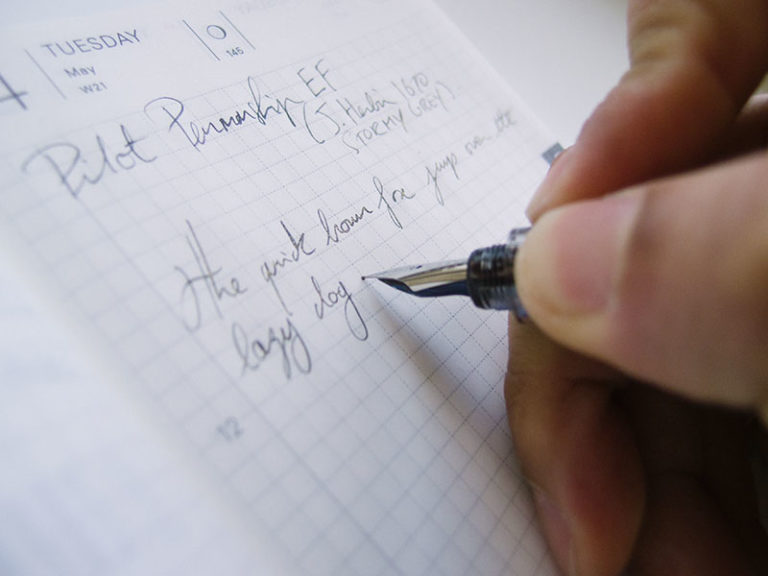 TUESDAY
May
W21
145
Pilot Penmanship EF
(J. Herbin 1670
STORMY GREY)
the quick brown fox jumps over the
lazy dog
12